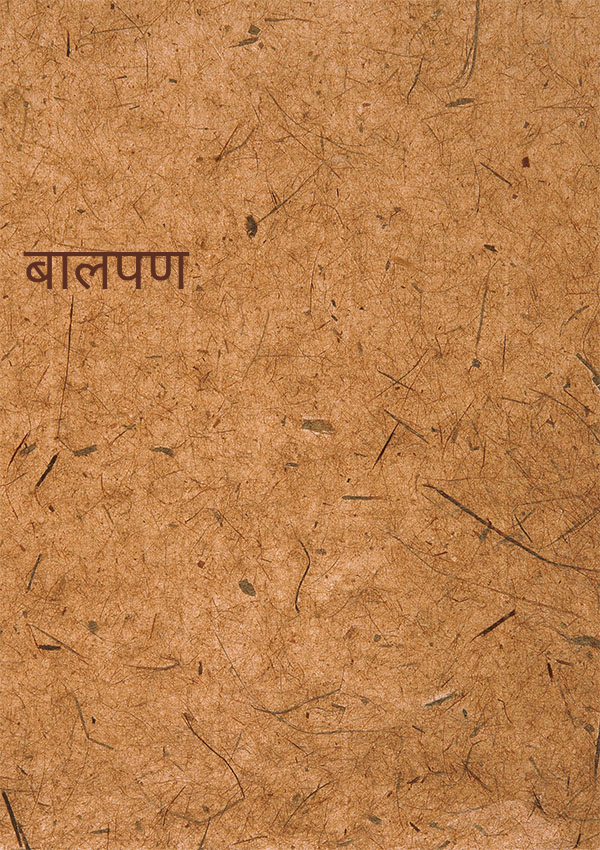 बालपण